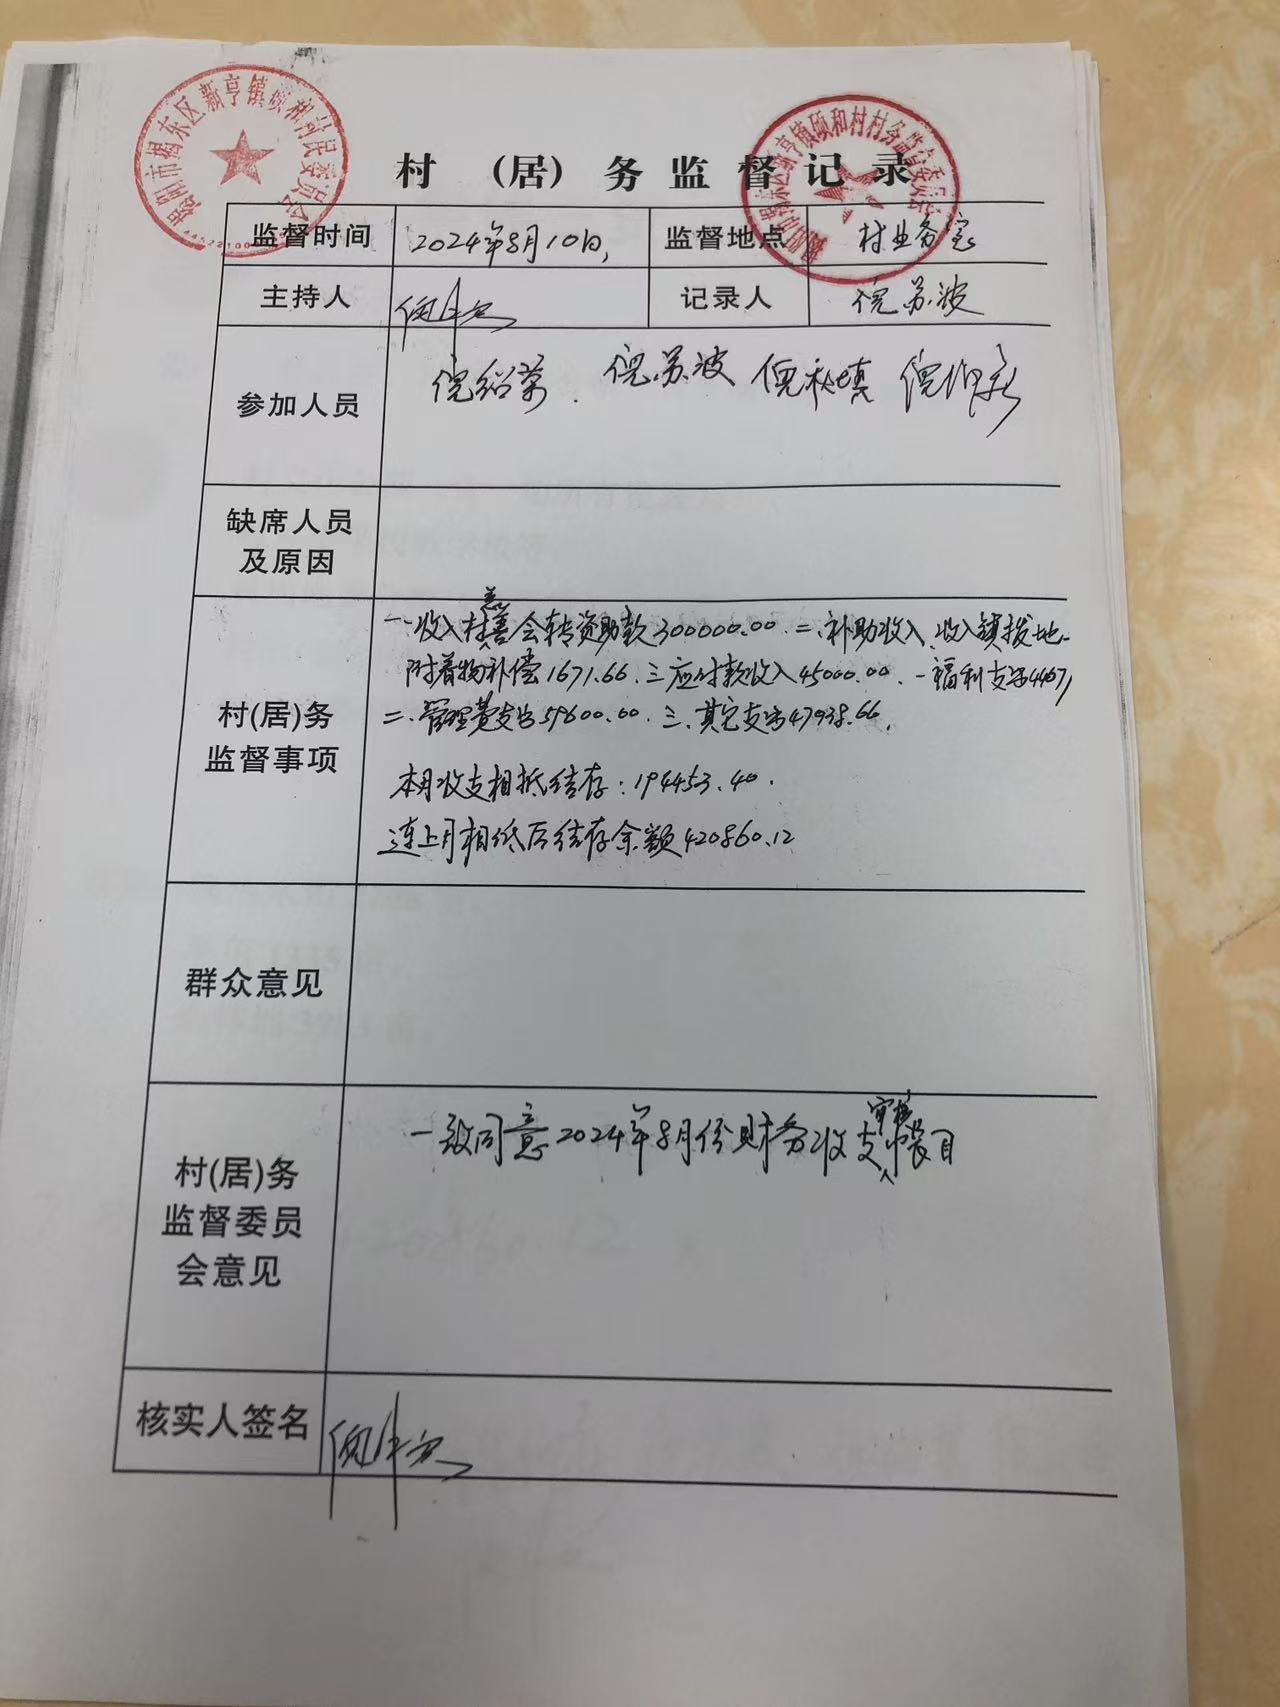 揭阳市揭东区新亨镇硕和村村民委员会
揭阳市揭东区新亨镇硕和村村务监督委员会
村（居）务监督记录
监督时间 2024年8月10日, 监督地点 村业务室
主持人 记录人 倪苏波
参加人员 倪绍荣. 倪苏波 倪秋填
缺席人员
及原因
村(居)务
监督事项
一.收入村慈善会转资助款300000.00.二.补助收入.收入镇拨地
附着物补偿1671.66.三应付款收入45000.00.一福利支出
二.管理费支出59600.00.三.其它支出47938.66.
本月收支相抵结存:194453.40.
连上月相低后结存余额420860.12
群众意见
村(居)务
监督委员
会意见
一致同意2024年8月份财务收支审核帐目
核实人签名